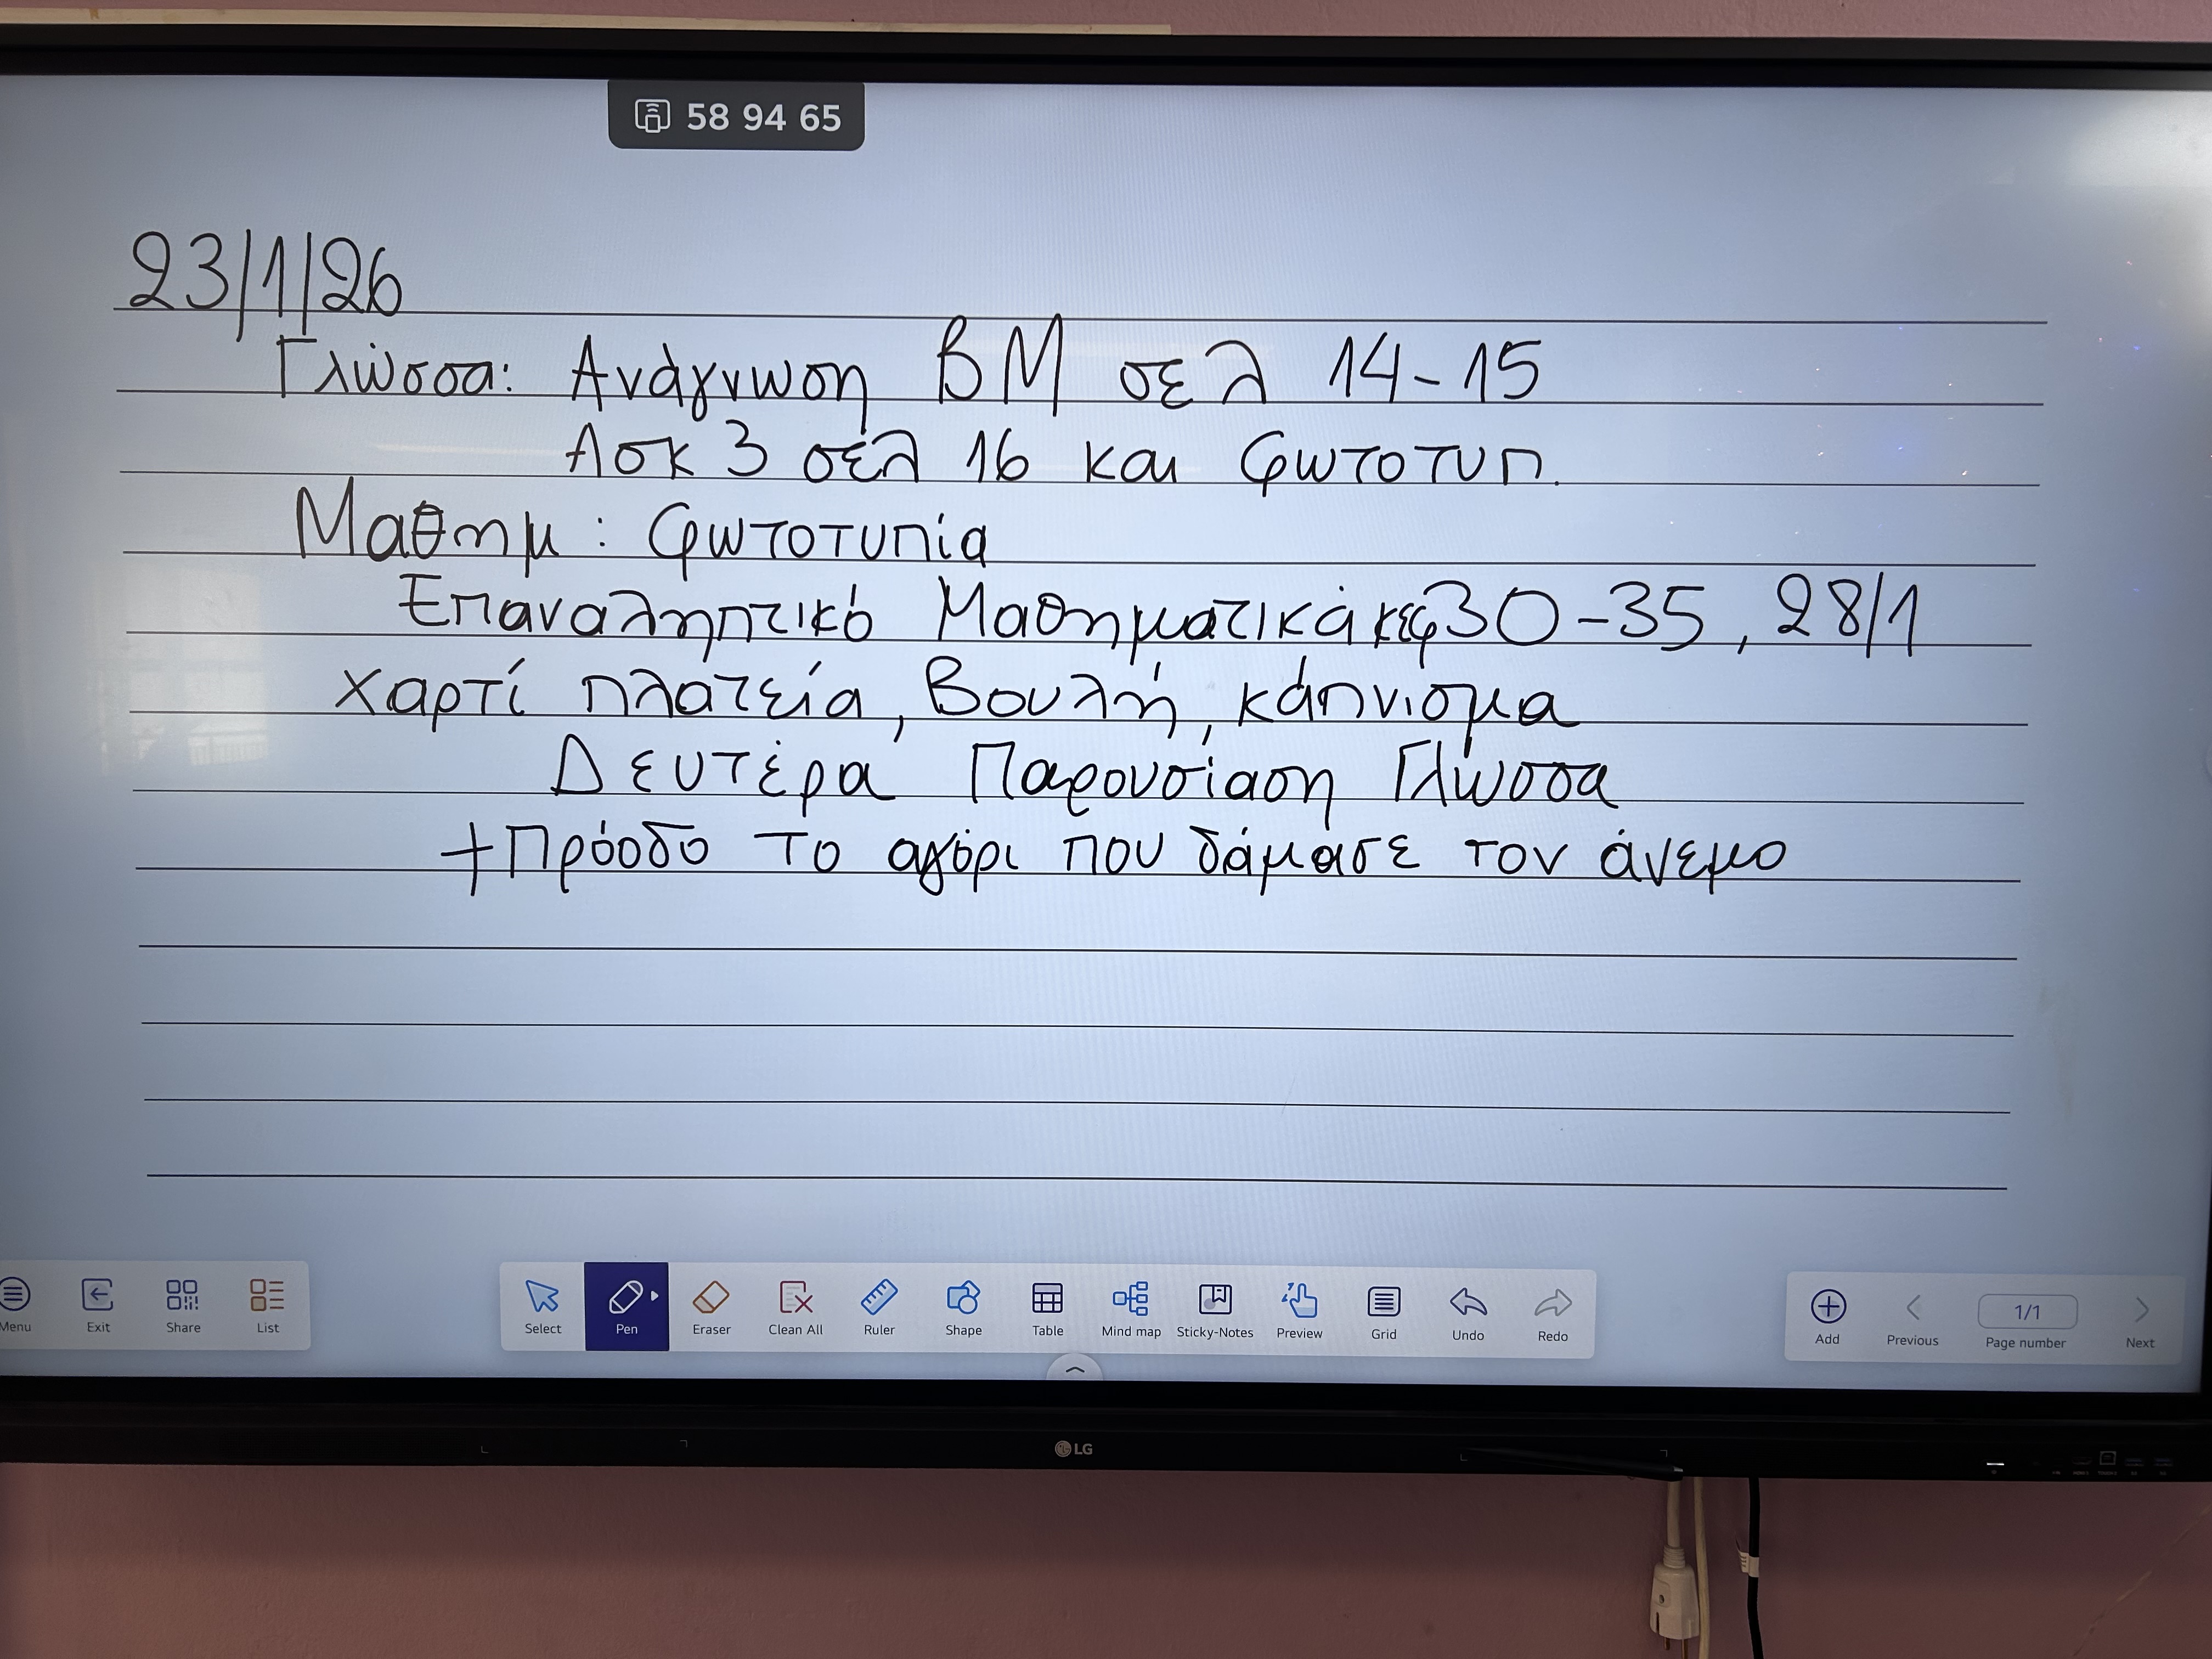 58 94 65
23/1/26
Γλώσσα: Ανάγνωση ΒΜ σελ 14-15
Ασκ 3 σελ 16 και φωτοτυπ.
Μαθημ: φωτοτυπία
Επαναληπτικό Μαθηματικά κεφ 30-35, 28/1
Χαρτί πλατεία, Βουλή, κάπνισμα
Δευτέρα Παρουσίαση Γλώσσα
+Πρόοδο Το αγόρι που δάμασε τον άνεμο
Menu Exit Share List Select Pen Eraser Clean All Ruler Shape Table Mind map Sticky-Notes Preview Grid Undo Redo Add Previous 1/1 Page number Next
LG